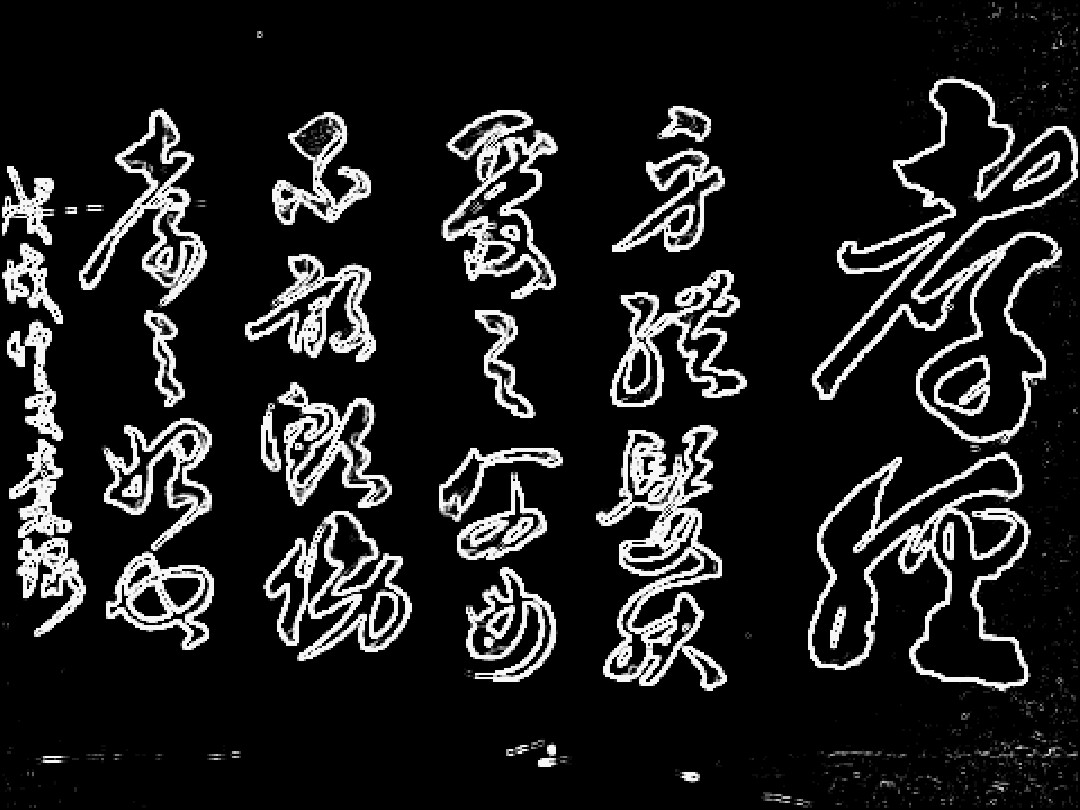 孝經
身體髮膚
受之父母
不敢毀傷
孝之始也